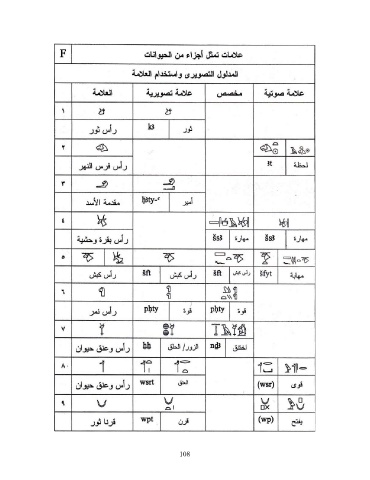 علامات تمثل أجزاء من الحيوانات F
المدلول التصويرى واستخدام العلامة
العلامة علامة تصويرية مخصص علامة صوتية
١
رأس ثور k3 ثور
٢
رأس فرس النهر 3t لحظة
٣
مقدمة الأسد ḥ3ty-ʿ أمير
٤
رأس بقرة وحشية šs3 مهارة šs3 مهارة
٥
رأس كبش šft رأس كبش šft رأس كبش šfyt مهابة
٦
رأس نمر pḥty قوة pḥty قوة
٧
رأس وعنق حيوان ḥh الزور/ الحلق nd3 اختنق
٨
رأس وعنق حيوان wsrt العنق (wsr) قوى
٩
قرنا ثور wpt قرن (wp) يفتح
108